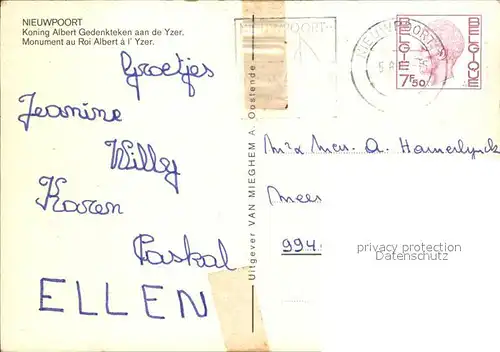 NIEUWPOORT
Koning Albert Gedenkteken aan de Yzer.
Monument au Roi Albert à l' Yzer.
Groetjes
Jeanine
Willy
Karen
Paskal
ELLEN
Uitgever VAN MIEGHEM A. Oostende
NIEUWPOORT
NIEUWPOORT
BELGIE
7F50
BELGIQUE
Mr & Mevr. A. Hamerlynck
994
privacy protection
Datenschutz